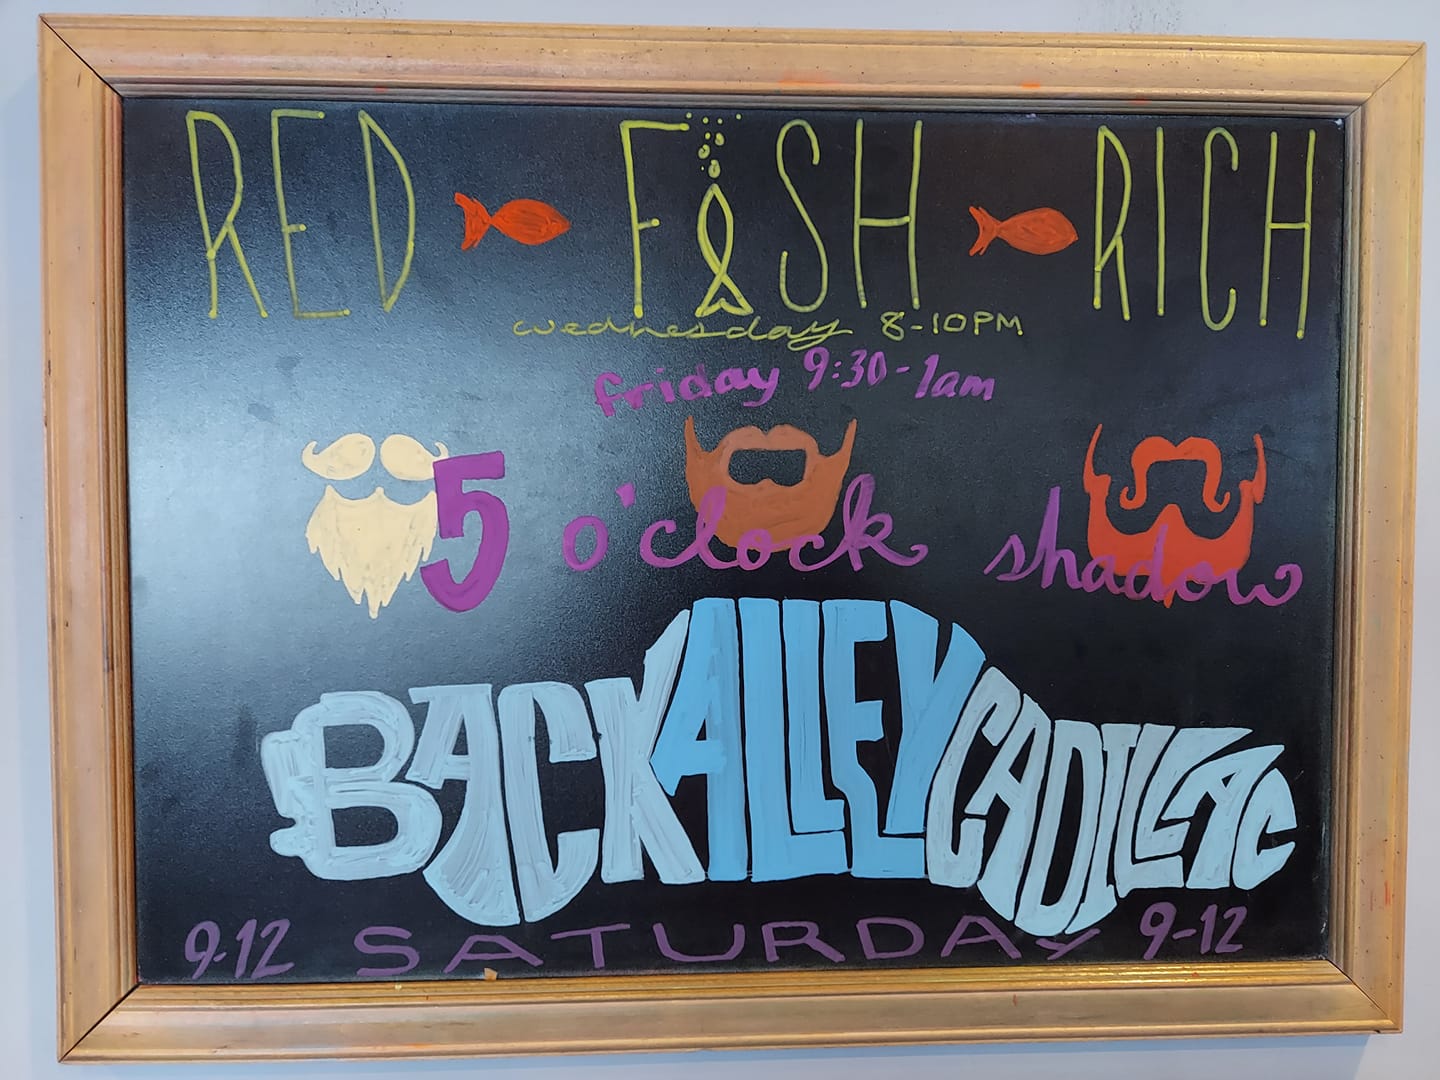 RED FISH RICH
wednesday 8-10PM
friday 9:30-1am
5 o'clock shadow
BACK ALLEY CADILLAC
9-12 SATURDAY 9-12